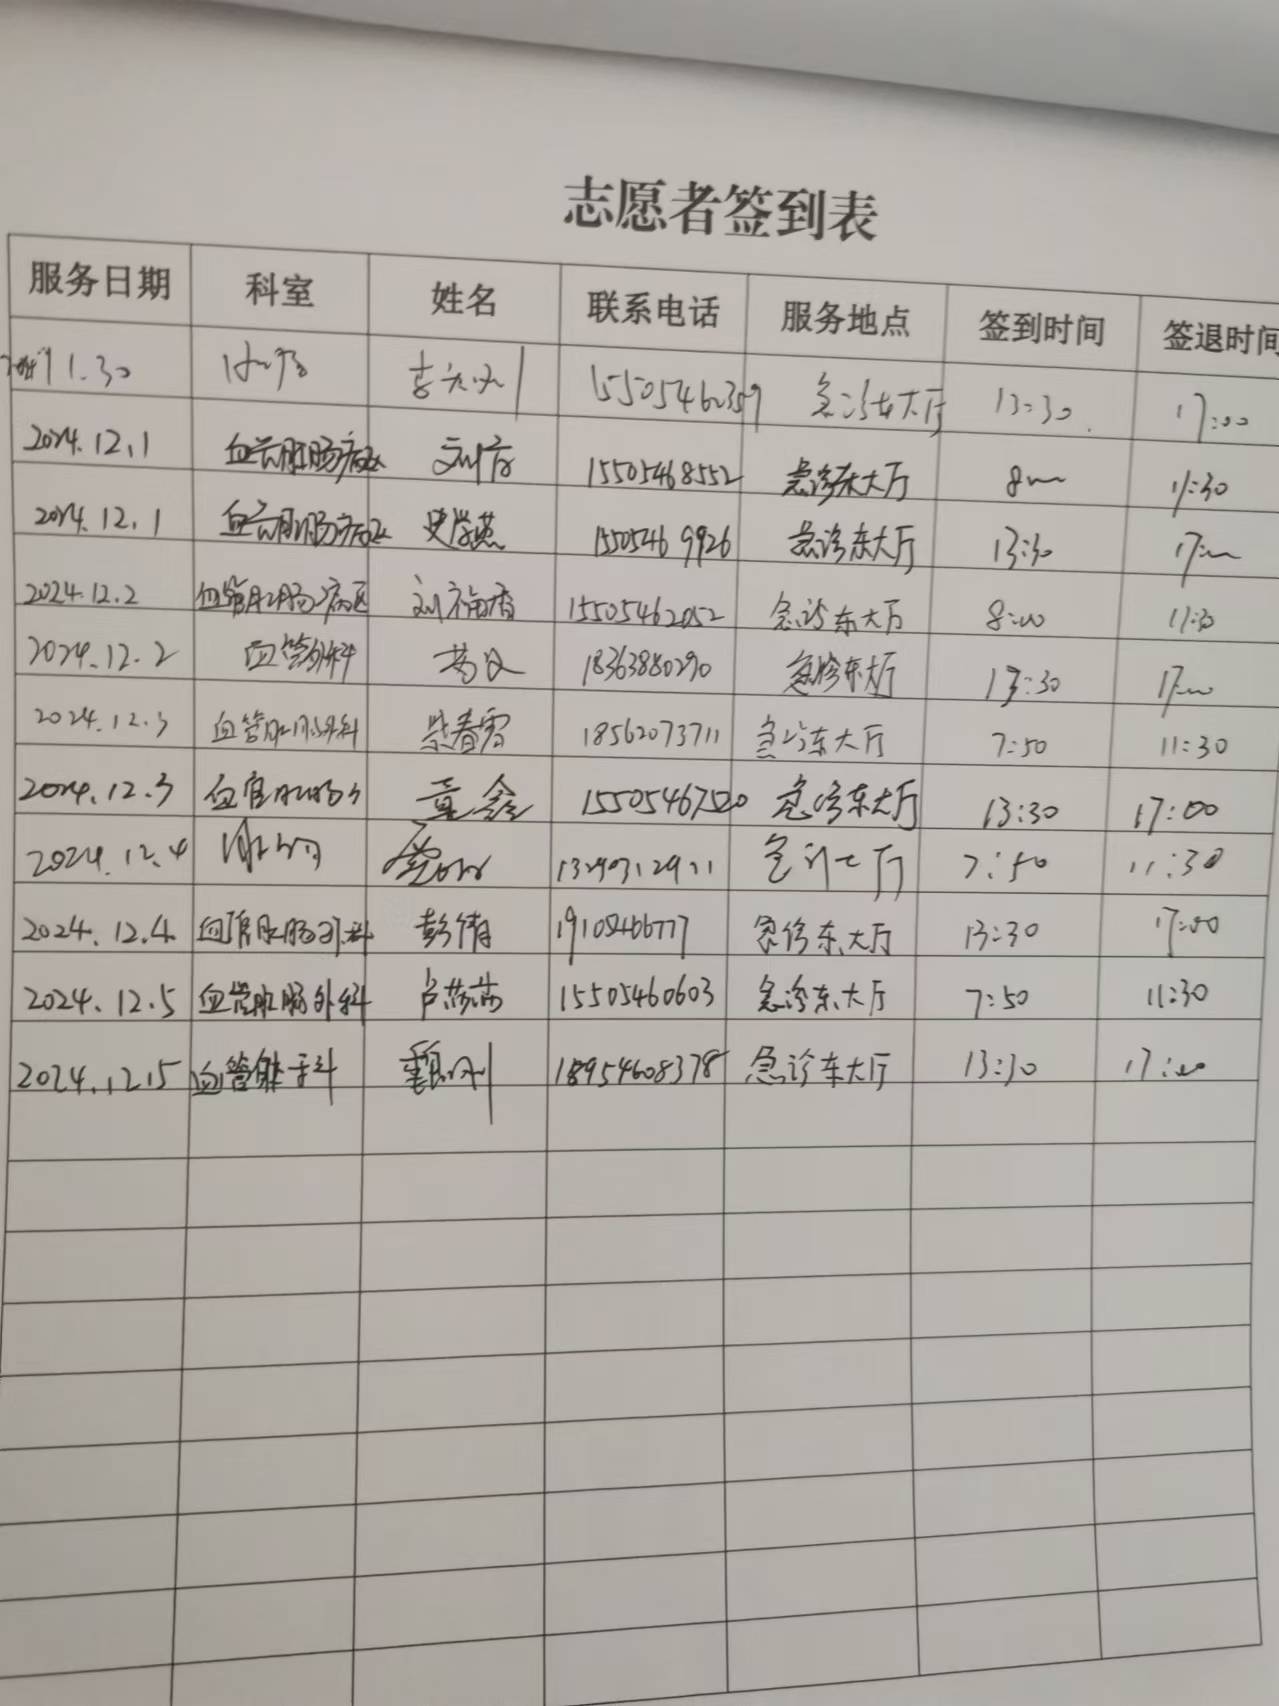 志愿者签到表
服务日期 科室 姓名 联系电话 服务地点 签到时间 签退时间
11.30 15505462359 急诊东大厅 13:30 17:00
2024.12.1 血管肛肠病区 15505468552 急诊东大厅 8:00 11:30
2024.12.1 血管肛肠病区 史学燕 15505469926 急诊东大厅 13:30 17:00
2024.12.2 血管肛肠病区 刘福香 15505462052 急诊东大厅 8:00 11:30
2024.12.2 血管外科 18363880290 急诊东大厅 13:30 17:00
2024.12.3 血管肛肠外科 柴春霞 18562073711 急诊东大厅 7:50 11:30
2024.12.3 血管肛肠外 童鑫 15505467520 急诊东大厅 13:30 17:00
2024.12.4 7:50 11:30
2024.12.4 血管肛肠外科 彭倩 急诊东大厅 13:30 17:00
2024.12.5 血管肛肠外科 卢莎莎 15505460603 急诊东大厅 7:50 11:30
2024.12.5 血管 18954608378 急诊东大厅 13:30 17:00